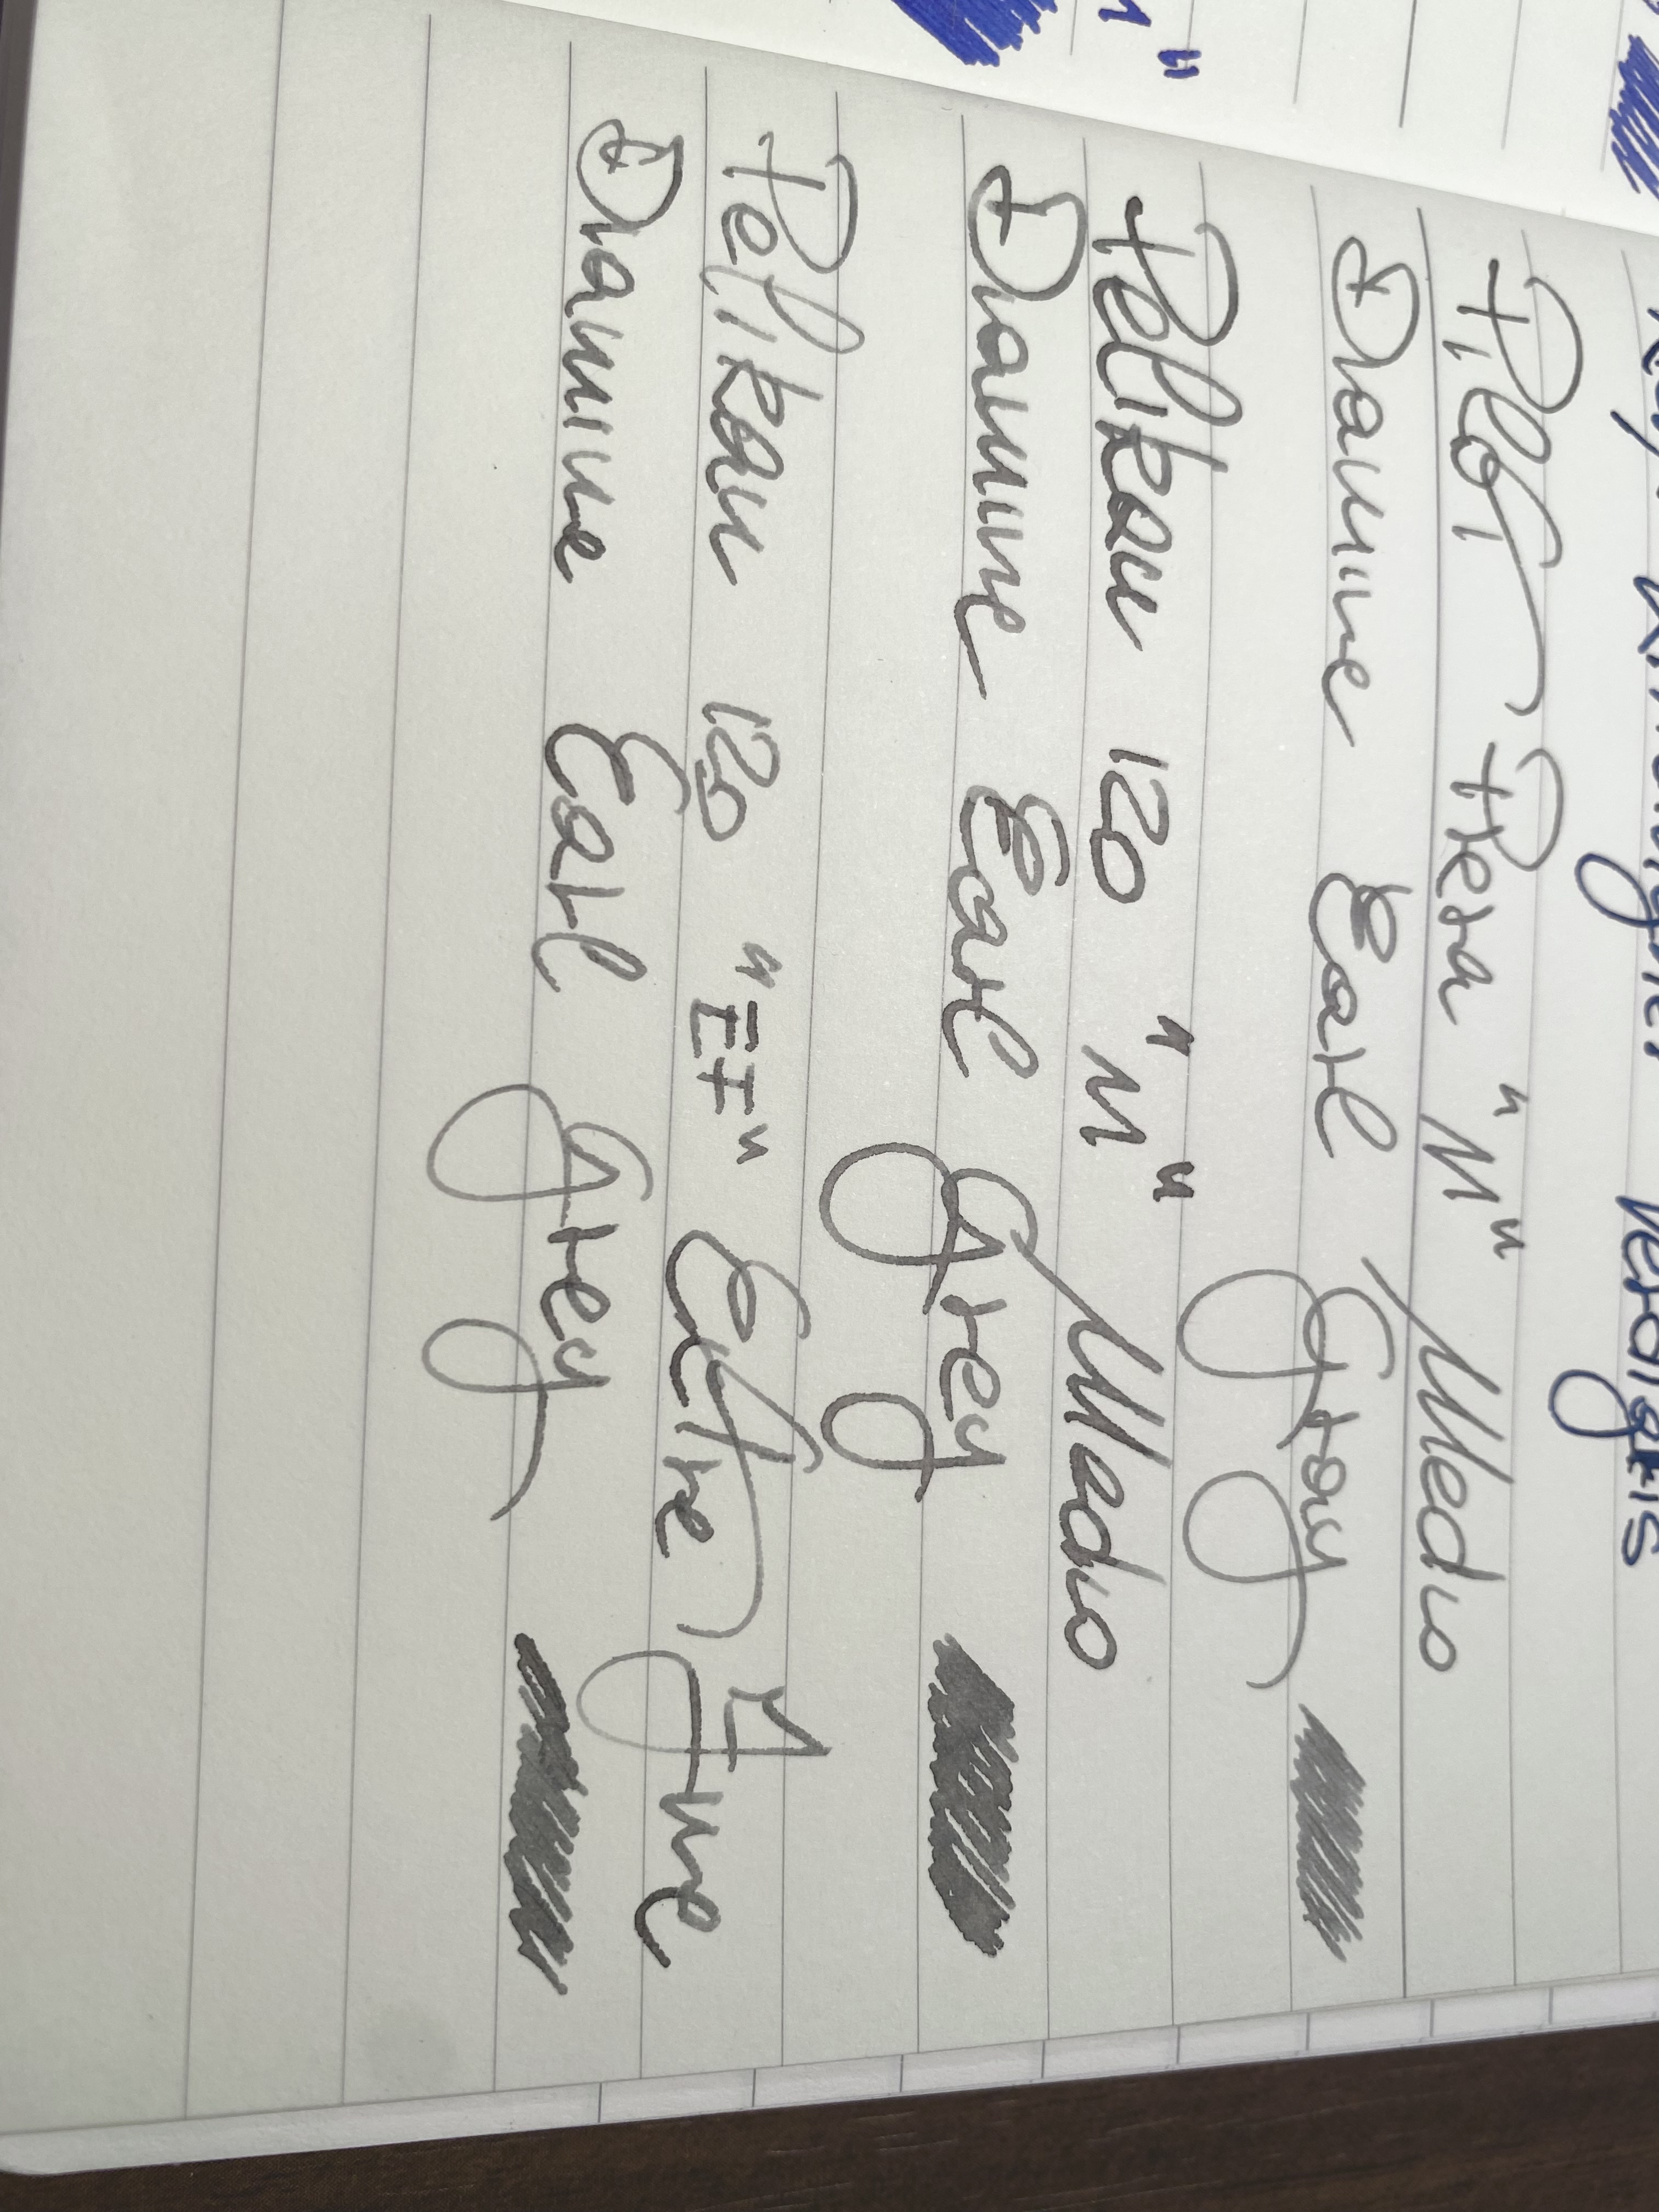 Verdigris
Pilot Prera "M" Medio
Diamine Earl Gray
Pelikan 120 "M" Medio
Diamine Earl Grey
Pelikan 120 "EF" Extra Fine
Diamine Earl Grey